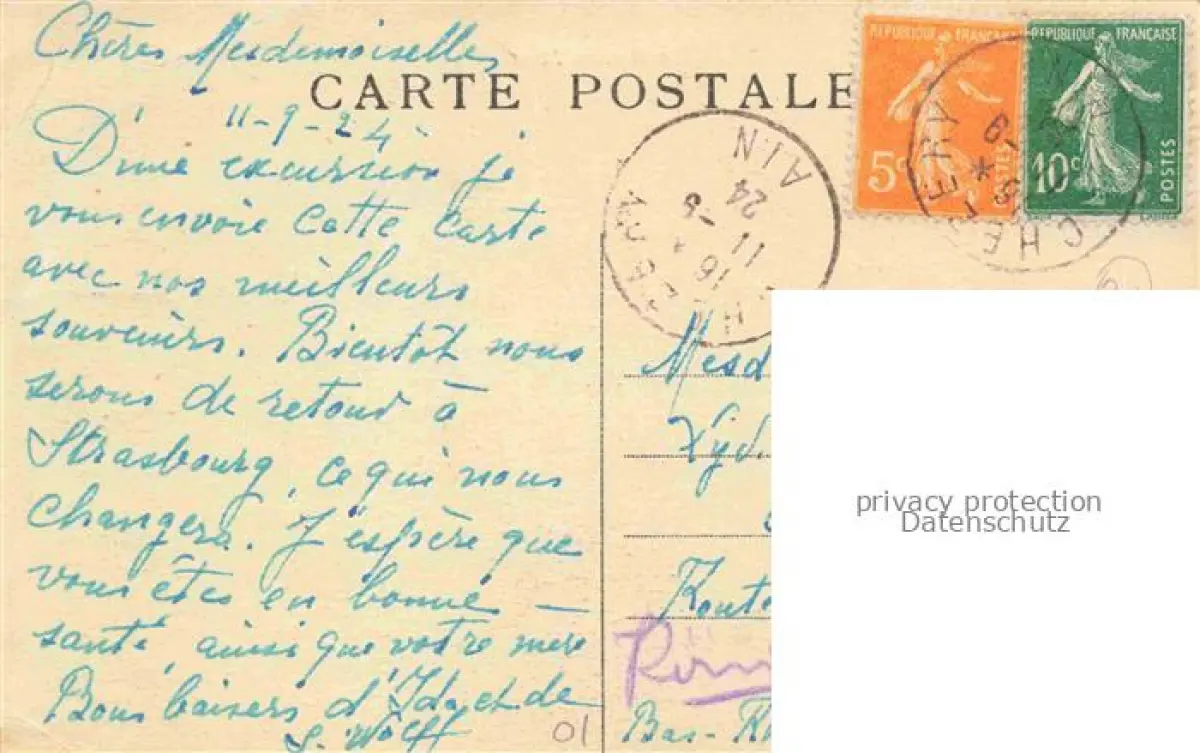 Chères Mesdemoiselles
CARTE POSTALE
11-9-24
D'une excursion je
vous envoie cette carte
avec nos meilleurs
souvenirs. Bientôt nous
serons de retour à
Strasbourg, ce qui nous
changera. J'espère que
vous êtes en bonne –
santé, ainsi que votre mère
Bons baisers d'Ida et de
S. Wolff
01
REPUBLIQUE FRANÇAISE
5c
POSTES
REPUBLIQUE FRANÇAISE
10c
POSTES
CHEZERY
AIN
11 -9
24
16
Mesd
Route
Bas-
privacy protection
Datenschutz